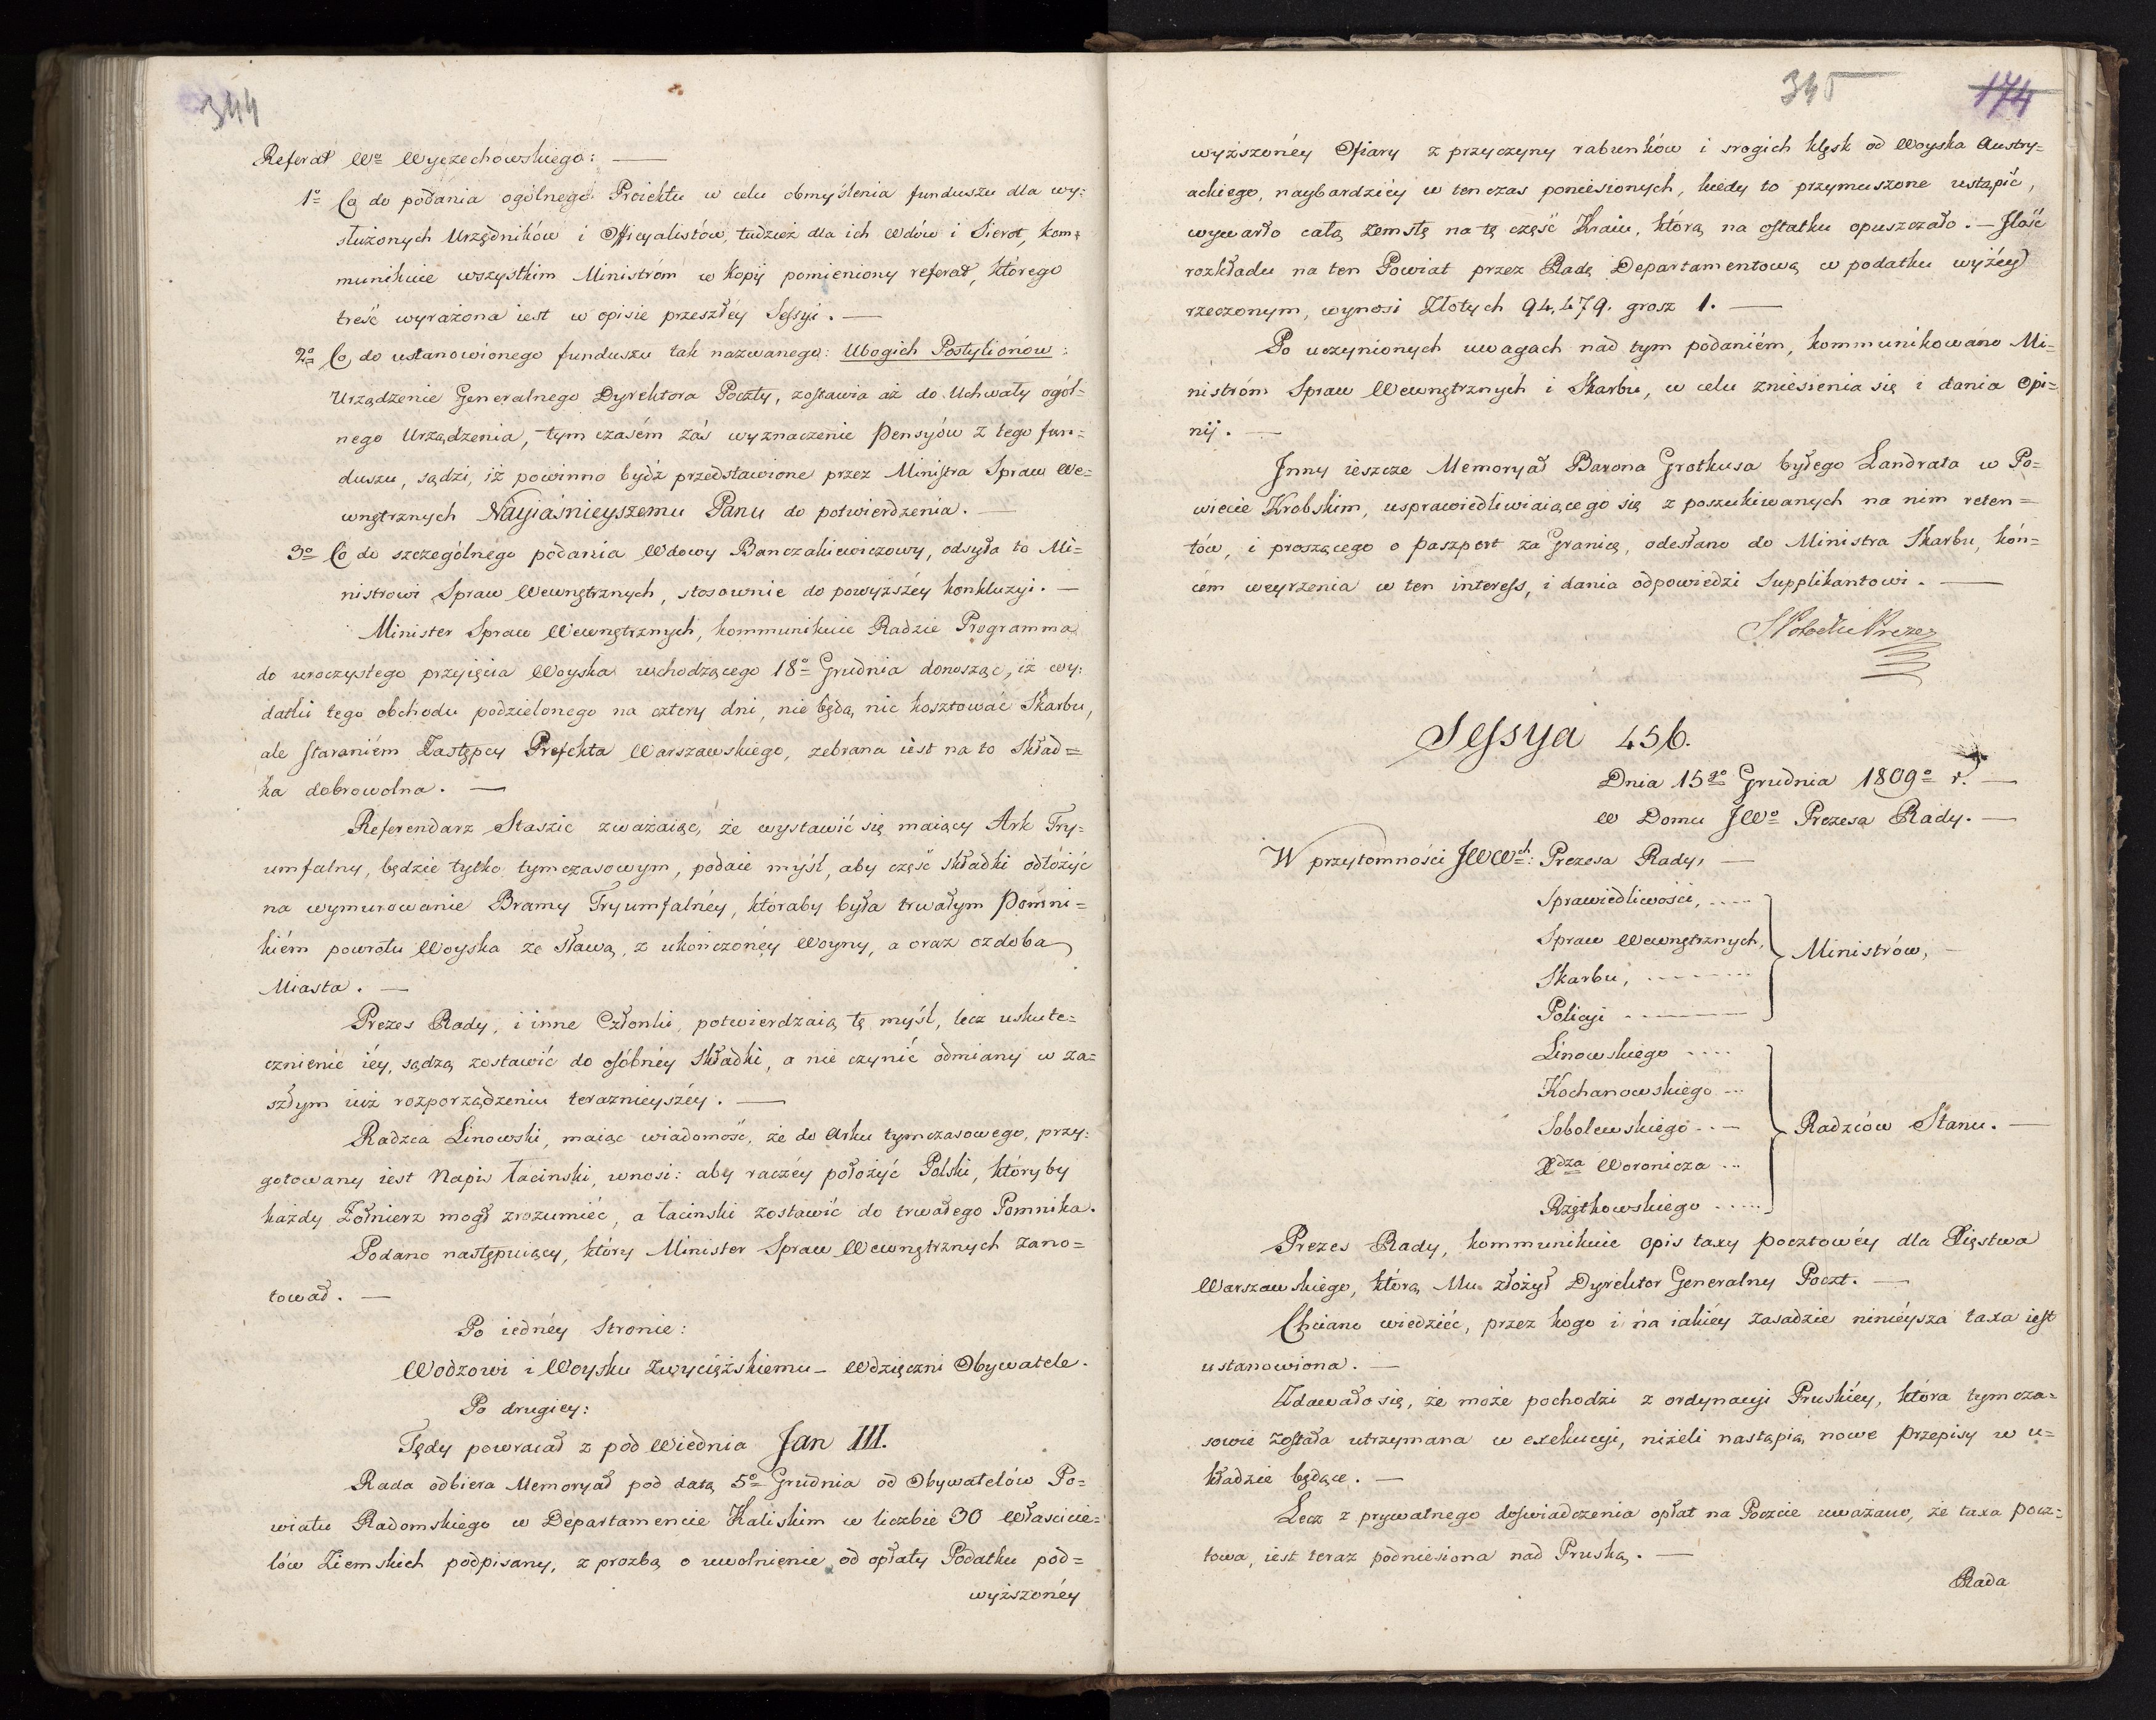 344
Referat Wo Wyczechowskiego: —
1o Co do podania ogólnego Proiektu w celu obmyślenia funduszu dla wy:
służonych Urzędników i Officyalistów, tudzież dla ich Wdów i Sierot, kom=
munikuie wszystkim Ministróm w kopij pomieniony referat, którego
treść wyrażona iest w opisie przeszłéy Sessyi. —
2o Co do ustanowionego funduszu tak nazwanego: Ubogich Postylionów:
Urządzenie Generalnego Dyrektora Poczty, zostawia aż do Uchwały ogól=
nego Urządzenia, tym czasém zaś wyznaczenie Pensyów z tego fun=
duszu, sądzi, iż powinno bydź przedstawione przez Ministra Spraw We=
wnętrznych Nayiaśnieyszemu Panu do potwierdzenia. —
3o Co do szczególnego podania Wdowy Banczakiewiczowy, odsyła to Mi=
nistrowi Spraw Wewnętrznych, stosownie do powyższéy konkluzyi. —
Minister Spraw Wewnętrznych, kommunikuie Radzie Programma
do uroczystego przyięcia Woyska wchodzącego 18o Grudnia donosząc, iż wy:
datki tego obchodu podzielonego na cztery dni, nie będą nic kosztować Skarbu,
ale staraniém Zastępcy Prefekta Warszawskiego, zebrana iest na to Skład=
ka dobrowolna. —
Referendarz Staszic zważaiąc, że wystawić się maiący Ark Try=
umfalny, będzie tylko tymczasowym, podaie myśl, aby część składki odłóżyć
na wymurowanie Bramy Tryumfalnéy, któraby była trwałym Pomni=
kiém powrotu Woyska ze sławą, z ukończonéy Woyny, a oraz ozdobą
Miasta. —
Prezes Rady, i inne Członki, potwierdzaią tę myśl, lecz uskute=
cznienie iéy, sądzą zostawić do osóbnéy Składki, a nie czynić odmiany w za=
szłym iuż rozporządzeniu teraznieyszéy. —
Radzca Linowski, maiąc wiadomość, że do Arku tymczasowego, przy:
gotowany iest Napis łacinski, wnosi: aby raczéy położyć Polski, któryby
każdy Żołnierz mogł zrozumieć, a łacinski zostawić do trwałego Pomnika.
Podano następuiący, który Minister Spraw Wewnętrznych zano=
tował. —
Po iednéy Stronie:
Wodzowi i Woysku Zwyciężskiemu — Wdzięczni Obywatele.
Po drugiey:
Tędy powracał z pod Wiednia Jan III.
Rada odbiera Memoryał pod datą 5o Grudnia od Obywatelów Po=
wiatu Radomskiego w Departamencie Kaliskim w liczbie 30 Właścicie=
lów Ziemskich podpisany, z prozbą o uwolnienie od opłaty Podatku pod=
wyższonéy
345 174
wyższonéy Ofiary z przyczyny rabunków i srogich klęsk od Woyska Austry=
ackiego, naybardziéy w ten czas poniesionych, kiedy to przymuszone ustąpić,
wywarło całą zemstę na tę część Kraiu, którą na ostatku opuszczało. — Jlość
rozkładu na ten Powiat przez Radę Departamentową w podatku wyżéy
rzeczonym, wynosi Złotych 94,479. grosz 1. —
Po uczynionych uwagach nad tym podaniém, kommunikowano Mi=
nistróm Spraw Wewnętrznych i Skarbu, w celu zniesienia się i dania Opi=
nij. —
Jnny ieszcze Memoryał Barona Grothusa byłego Landrata w Po=
wiecie Krobskim, usprawiedliwiaiącego się z poszukiwanych na nim reten=
tów, i proszącego o paszport za Granicę, odesłano do Ministra Skarbu, kóń=
cém weyrzenia w ten interess, i dania odpowiedzi Supplikantowi. —
SPotocki Prezes
Sessya 456.
Dnia 15go Grudnia 1809o r. —
w Domu JWo Prezesa Rady. —
W przytomności JWWch: Prezesa Rady, —
Sprawiedliwości, ....
Spraw Wewnętrznych,
Ministrów, —
Skarbu, ........
Policyi ........
Linowskiego ....
Kochanowskiego ...
Sobolewskiego ...
Radzców Stanu. —
Xdza Woronicza ...
Rzętkowskiego .....
Prezes Rady, kommunikuie opis taxy pocztowéy dla Xięstwa
Warszawskiego, którą Mu złożył Dyrektor Generalny Poczt. —
Chciano wiedzieć, przez kogo i na iakiéy zasadzie ninieysza taxa iest
ustanowiona. —
Zdawało się, że może pochodzi z ordynacyi Pruskiéy, która tymcza=
sowie została utrzymana w exekucyi, niżeli nastąpią nowe przepisy w u=
kładzie będące. —
Lecz z prywatnego doświadczenia opłat na Poczcie uważano, że taxa pocz=
towa, iest teraz podniesiona nad Pruską. —
Rada